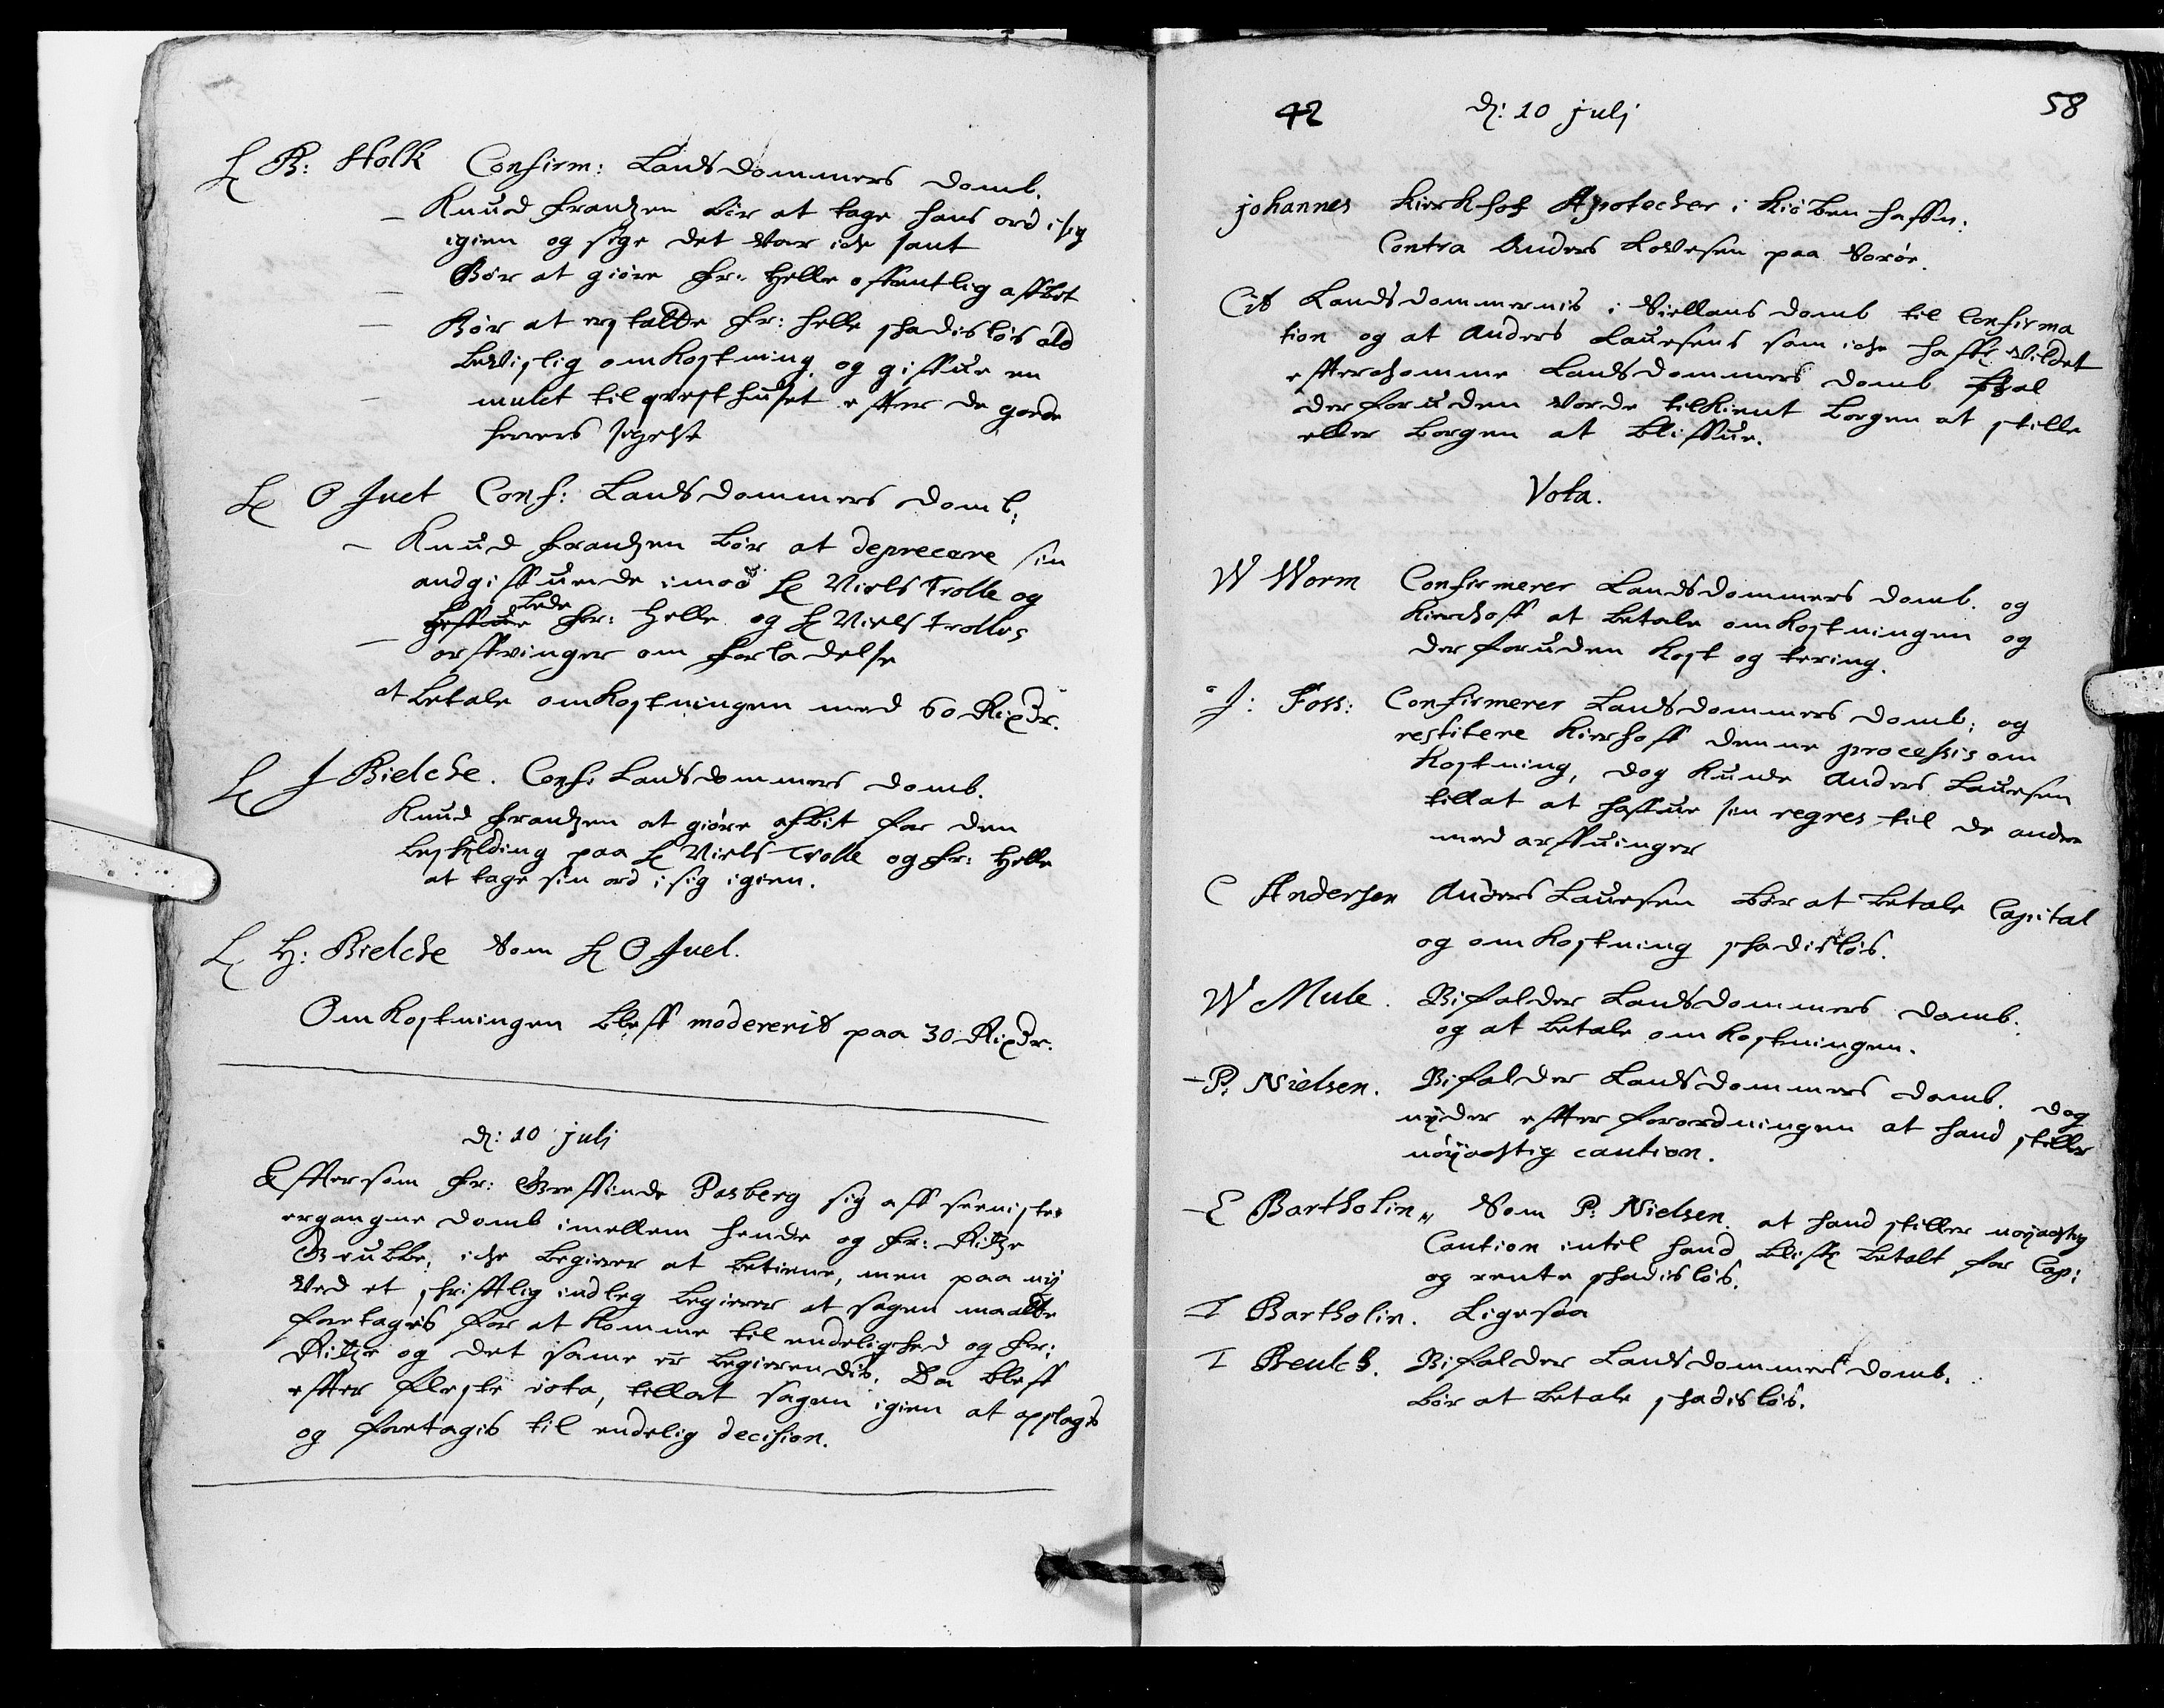 H B: Holk Confirm: Landsdommers domb.
— Knud Frandzen bör at tage hans ord i sig
igien og sige det var iche sant
— Bör at giöre Fr: Helle offentlig affbet
— Bör at erstatte Fr: Helle schadislös ald
beviislig omkostning, og giffue en
— mulct til qvesthuset effter de goede
herrers sigelse
H O Juel Conf: Landsdommers domb;
— Knud Frandzen bör at deprecere sin
angiffuende imod H Niels Trolle og
bede Fr: Helle og H Niels Trolles
— arffvinger om forladelse
at betale omkostningen med 60 Rixdr.
H J Bielche. Conf: Landsdommers domb.
Knud Frandzen at giöre afbit for den
beskylding paa H Niels Trolle og Fr: Helle
at tage sin ord i sig igien.
H H: Bielche Som H O Juel.
Omkostningen bleff modererit paa 30 Rixdr.
d: 10 julj
Effter som Fr: Greffinde Parsberg sig aff seeniste
ergangne domb imellem hende og Fr: Ritze
Grubbe, iche begierer at betiene, men paa nÿ
ved et schrifftlig indleg begierer at sagen maatte
foretagis for at komme til endelighed og Fr:
Ritze og det samme er begierendis. Da bleff
effter fleste vota, tillat sagen igien at optagis
og foretagis til endelig decision.
42 d: 10 julj 58
johannes Kirkhof Apotecher i Kiöbenhaffn.
Contra Anders Lavesen paa Soröe.
Cit Landsdommernis i Siellans domb til Confirma
tion og at Anders Lauesens som iche haffr vildet
effterchomme Landsdommers domb skal
derforuden vorde tilkient borgen at stille
eller borgen at bliffue.
Vota.
W Worm Confirmerer Landsdommers domb. og
Kierchoff at betale omkostningen og
der foruden kost og tering.
J: Foss: Confirmerer Landsdommers domb; og
restitere Kierhoff denne processis om
kostning, dog kunde Anders Lauesen
tillat at haffue sin regres til de andre
med arffuinger
C Andersen Anders Lauesen bör at betale Capital
og omkostning schadislös.
W Mule. Bifalder Landsdommers domb:
og at betale omkostningen.
— P: Nielsen. Bifalder Landsdommers domb. dog
nÿder effter forordningen at hand stiller
nöÿachtig caution.
— E Bartholin Som P: Nielsen. at hand stiller nöÿachtig
Caution intil hand bliffr betalt for Cap:
og rente schadislös.
T Bartholin. Ligesaa
T Reulch. Bifalder Landsdommers domb.
bör at betale schadislös.